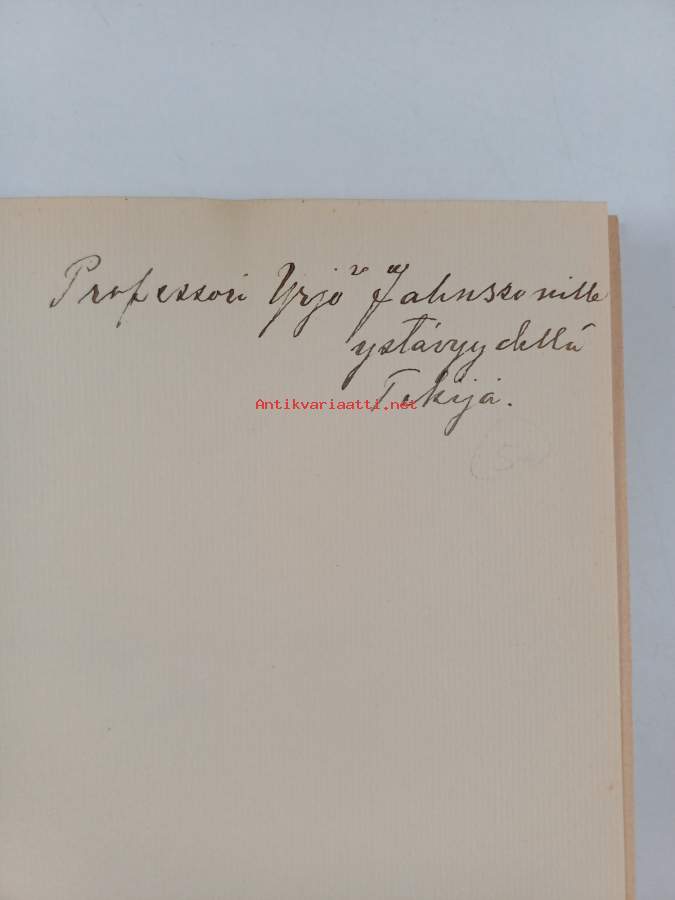 Professori Yrjö Jahnssonille
ystävyydellä
Tekijä.
Antikvariaatti.net